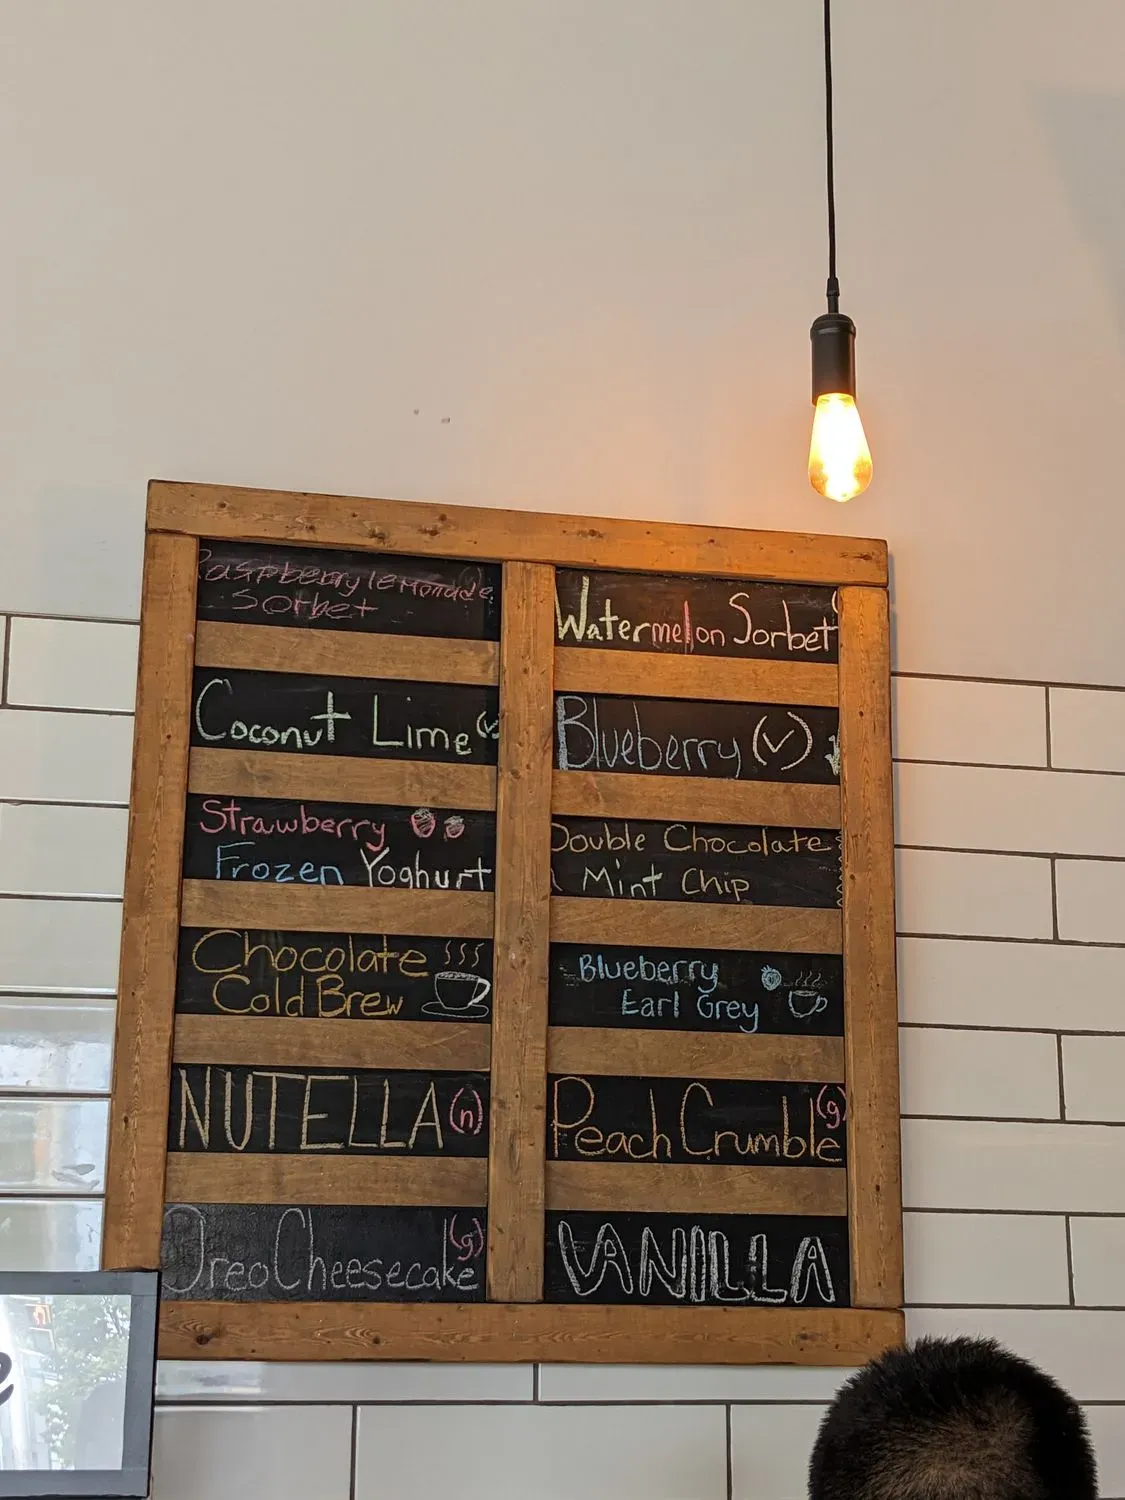 Raspberry lemonade
Sorbet
Coconut Lime (✓
Strawberry
Frozen Yoghurt
Chocolate
Cold Brew
NUTELLA (n)
Oreo Cheesecake (g)
Watermelon Sorbet
Blueberry (✓)
Double Chocolate
Mint Chip
Blueberry
Earl Grey
Peach Crumble (g)
VANILLA
e